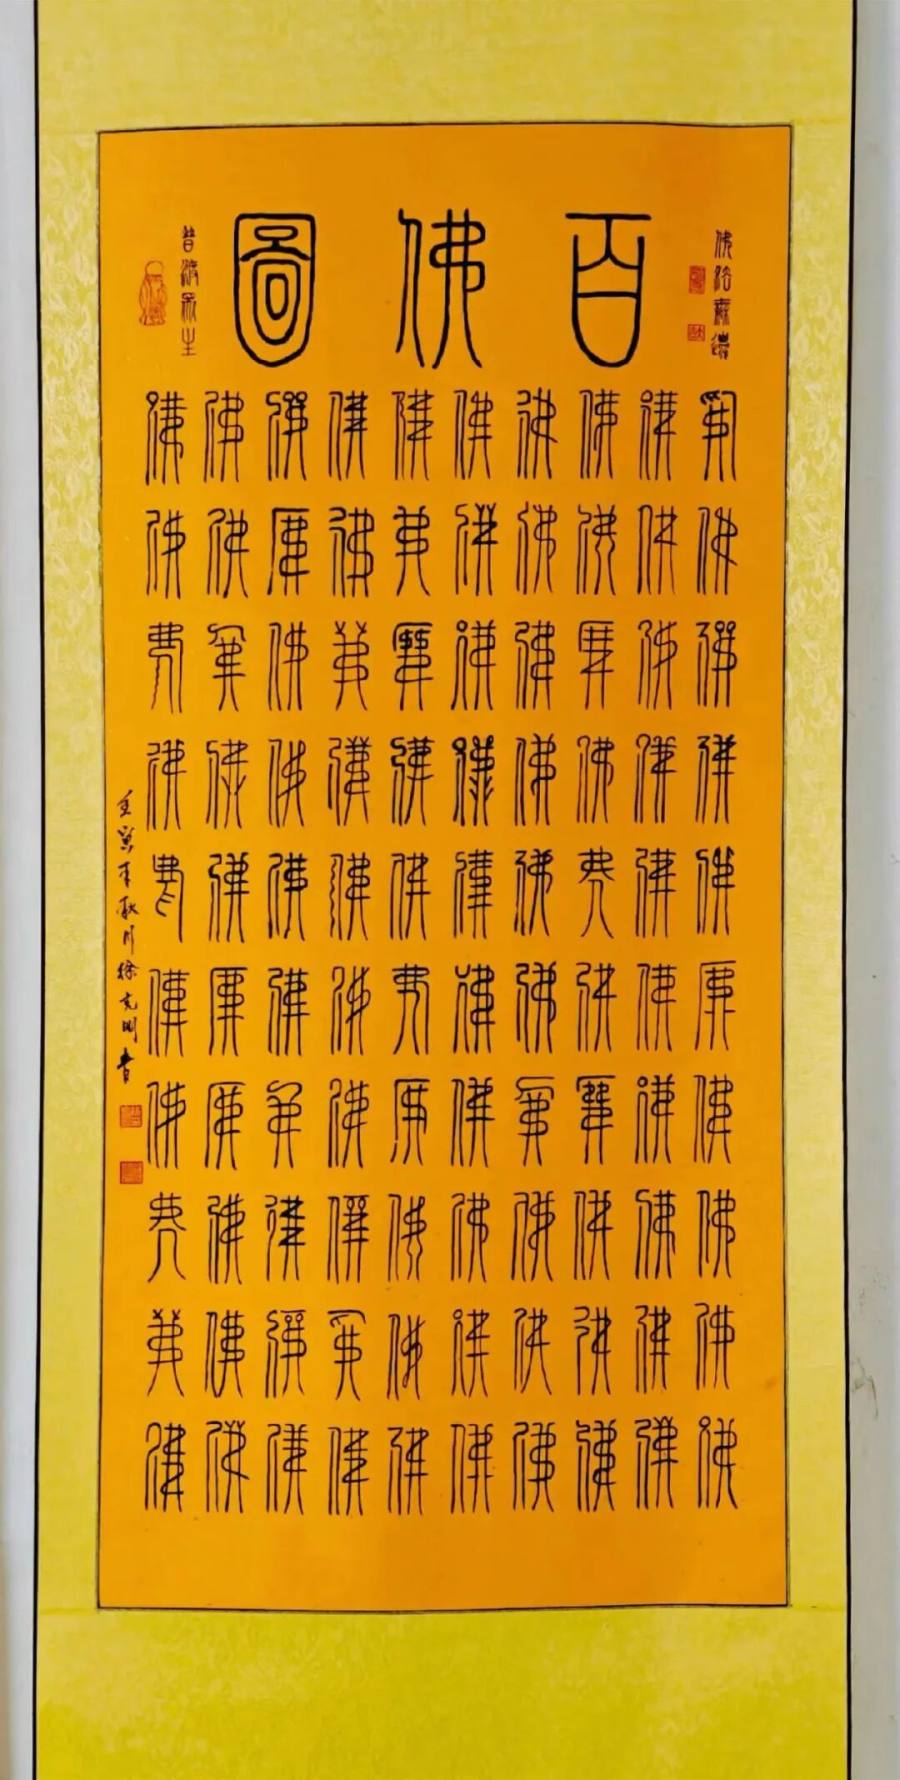 佛法無邊
百佛圖
普渡眾生
佛佛佛佛佛佛佛佛佛佛
佛佛佛佛佛佛佛佛佛佛
佛佛佛佛佛佛佛佛佛佛
佛佛佛佛佛佛佛佛佛佛
佛佛佛佛佛佛佛佛佛佛
佛佛佛佛佛佛佛佛佛佛
佛佛佛佛佛佛佛佛佛佛
佛佛佛佛佛佛佛佛佛佛
佛佛佛佛佛佛佛佛佛佛
佛佛佛佛佛佛佛佛佛佛
壬寅年秋月徐克明書